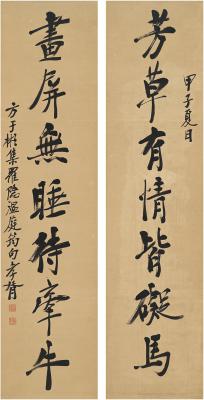 甲子夏日
芳草有情皆礙馬
畫屏無睡待牽牛
方于彬集羅隐溫庭筠句孝胥